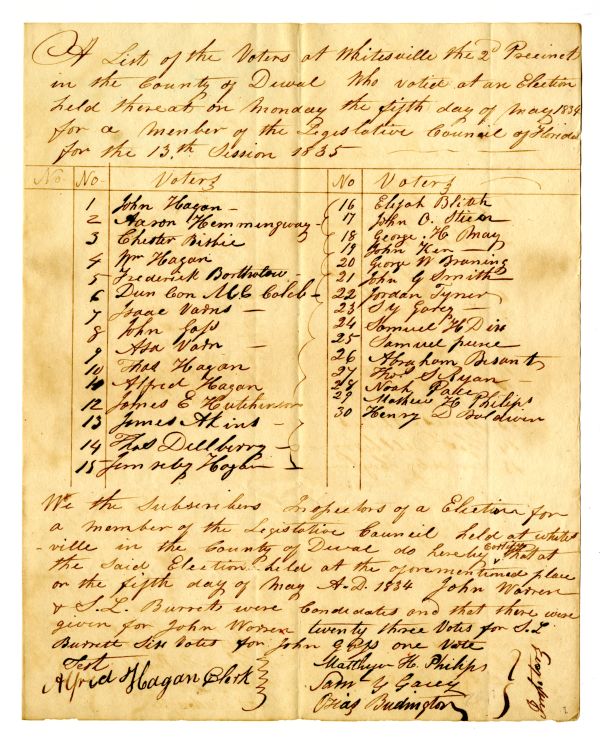 A List of the Voters at Whitesville the 2d Precinct
in the County of Duval Who voted at an Election
held thereat on Monday the fifth day of may 1834
for a member of the Legislative Council of Florida
for the 13.th Session 1835
No. No. Voters
1 John Hagan
2 Aaron Hemmingway
3 Chester Bisbie
4 Wm Hagan
5 Frederick
6 Dun Con Mc Caleb
7 Isaac Varns
8 John Goss
9 Asa Varn
10 Thos Hagan
11 Alfred Hagan
12 James E Hutcherson
13 James Akins
14 Thos Dellberry
15 Hagan
No Voters
16 Elijah Blith
17 John O.
18 George H May
19 John Ken
20 George W Bruning
21 John G Smith
22 Jordan Tyner
23 S y
24 Samuel H
25 Samuel
26 Abraham Besant
27 Thos S Ryan
28 Noah
29 Mathew H Philips
30 Henry D Boldwin
We the Subscribers Inspectors of a Election for
a member of the Legislative Council held at whites
-ville in the County of Duval do hereby Certify that at
the said Election held at the aforementioned place
on the fifth day of May A.D. 1834 John Warren
& S.L. Burrett were Candidates and that there were
given for John Warren twenty three Votes for S.L
Burrett Six Votes for John Goss one Vote
Test
Alfred Hagan Clerk
Matthew H. Philips
Sam Y Garey
Ozias Budington
Inspectors